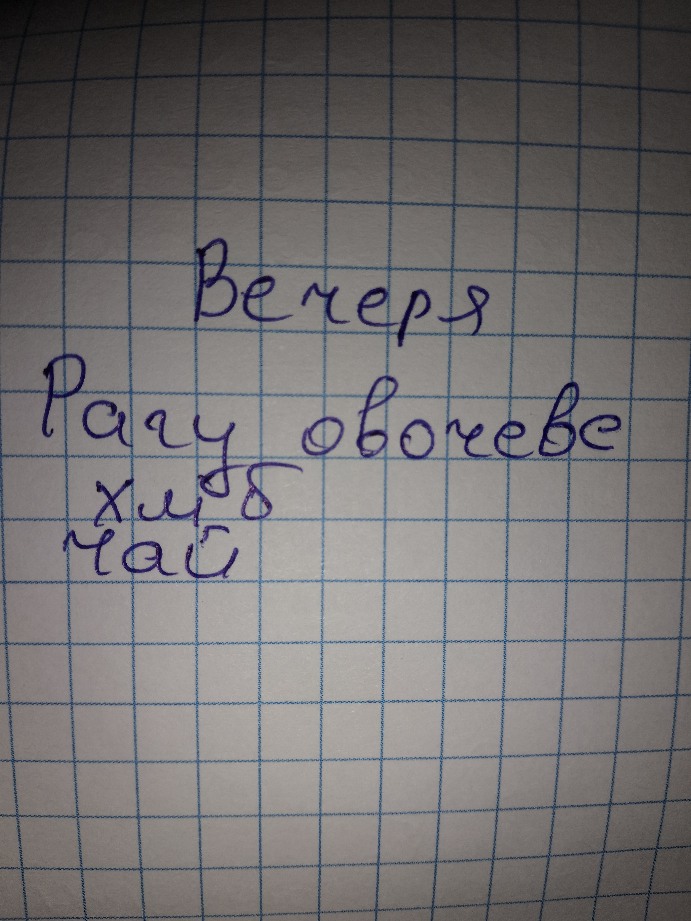 Вечеря
Рагу овочеве
хліб
чай